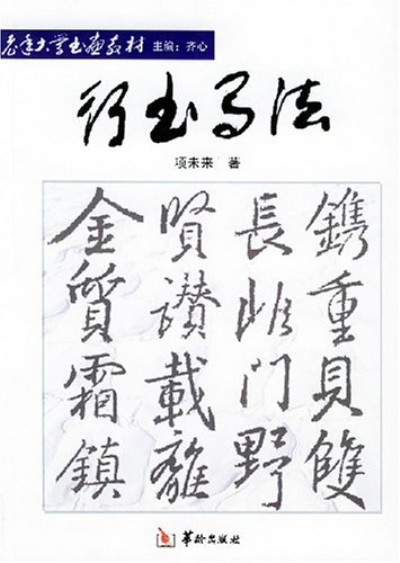 老年大学书画教材 主编：齐心
行书写法
项未来 著
鐫重貝
長 門野
賢讚載離
金質霜鎮
華龄出版社